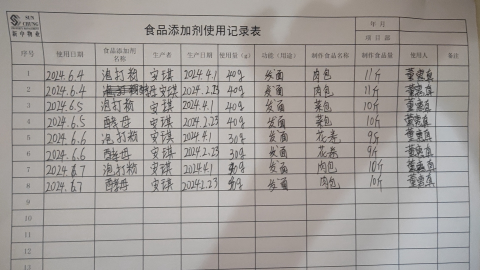 SUN CHUNG
新中物业
食品添加剂使用记录表
年 月
项目部
序号 使用日期 食品添加剂名称 生产者 生产日期 使用量(g) 功能(用途) 制作食品名称 制作食品量 使用人 备注
1 2024.6.4 泡打粉 安琪 2024.4.1 40g 发面 肉包 11斤
2 2024.6.4 安琪 2024.2.23 40g 发面 肉包 11斤
3 2024.6.5 泡打粉 安琪 2024.4.1 40g 发面 菜包 10斤
4 2024.6.5 酵母 安琪 2024.2.23 40g 发面 菜包 10斤
5 2024.6.6 泡打粉 安琪 2024.4.1 30g 发面 花卷 9斤
6 2024.6.6 酵母 安琪 2024.2.23 30g 发面 花卷 9斤
7 2024.6.7 泡打粉 安琪 2024.4.1 发面 肉包 10斤
8 2024.6.7 酵母 安琪 2024.2.23 发面 肉包 10斤
9
10
11
12